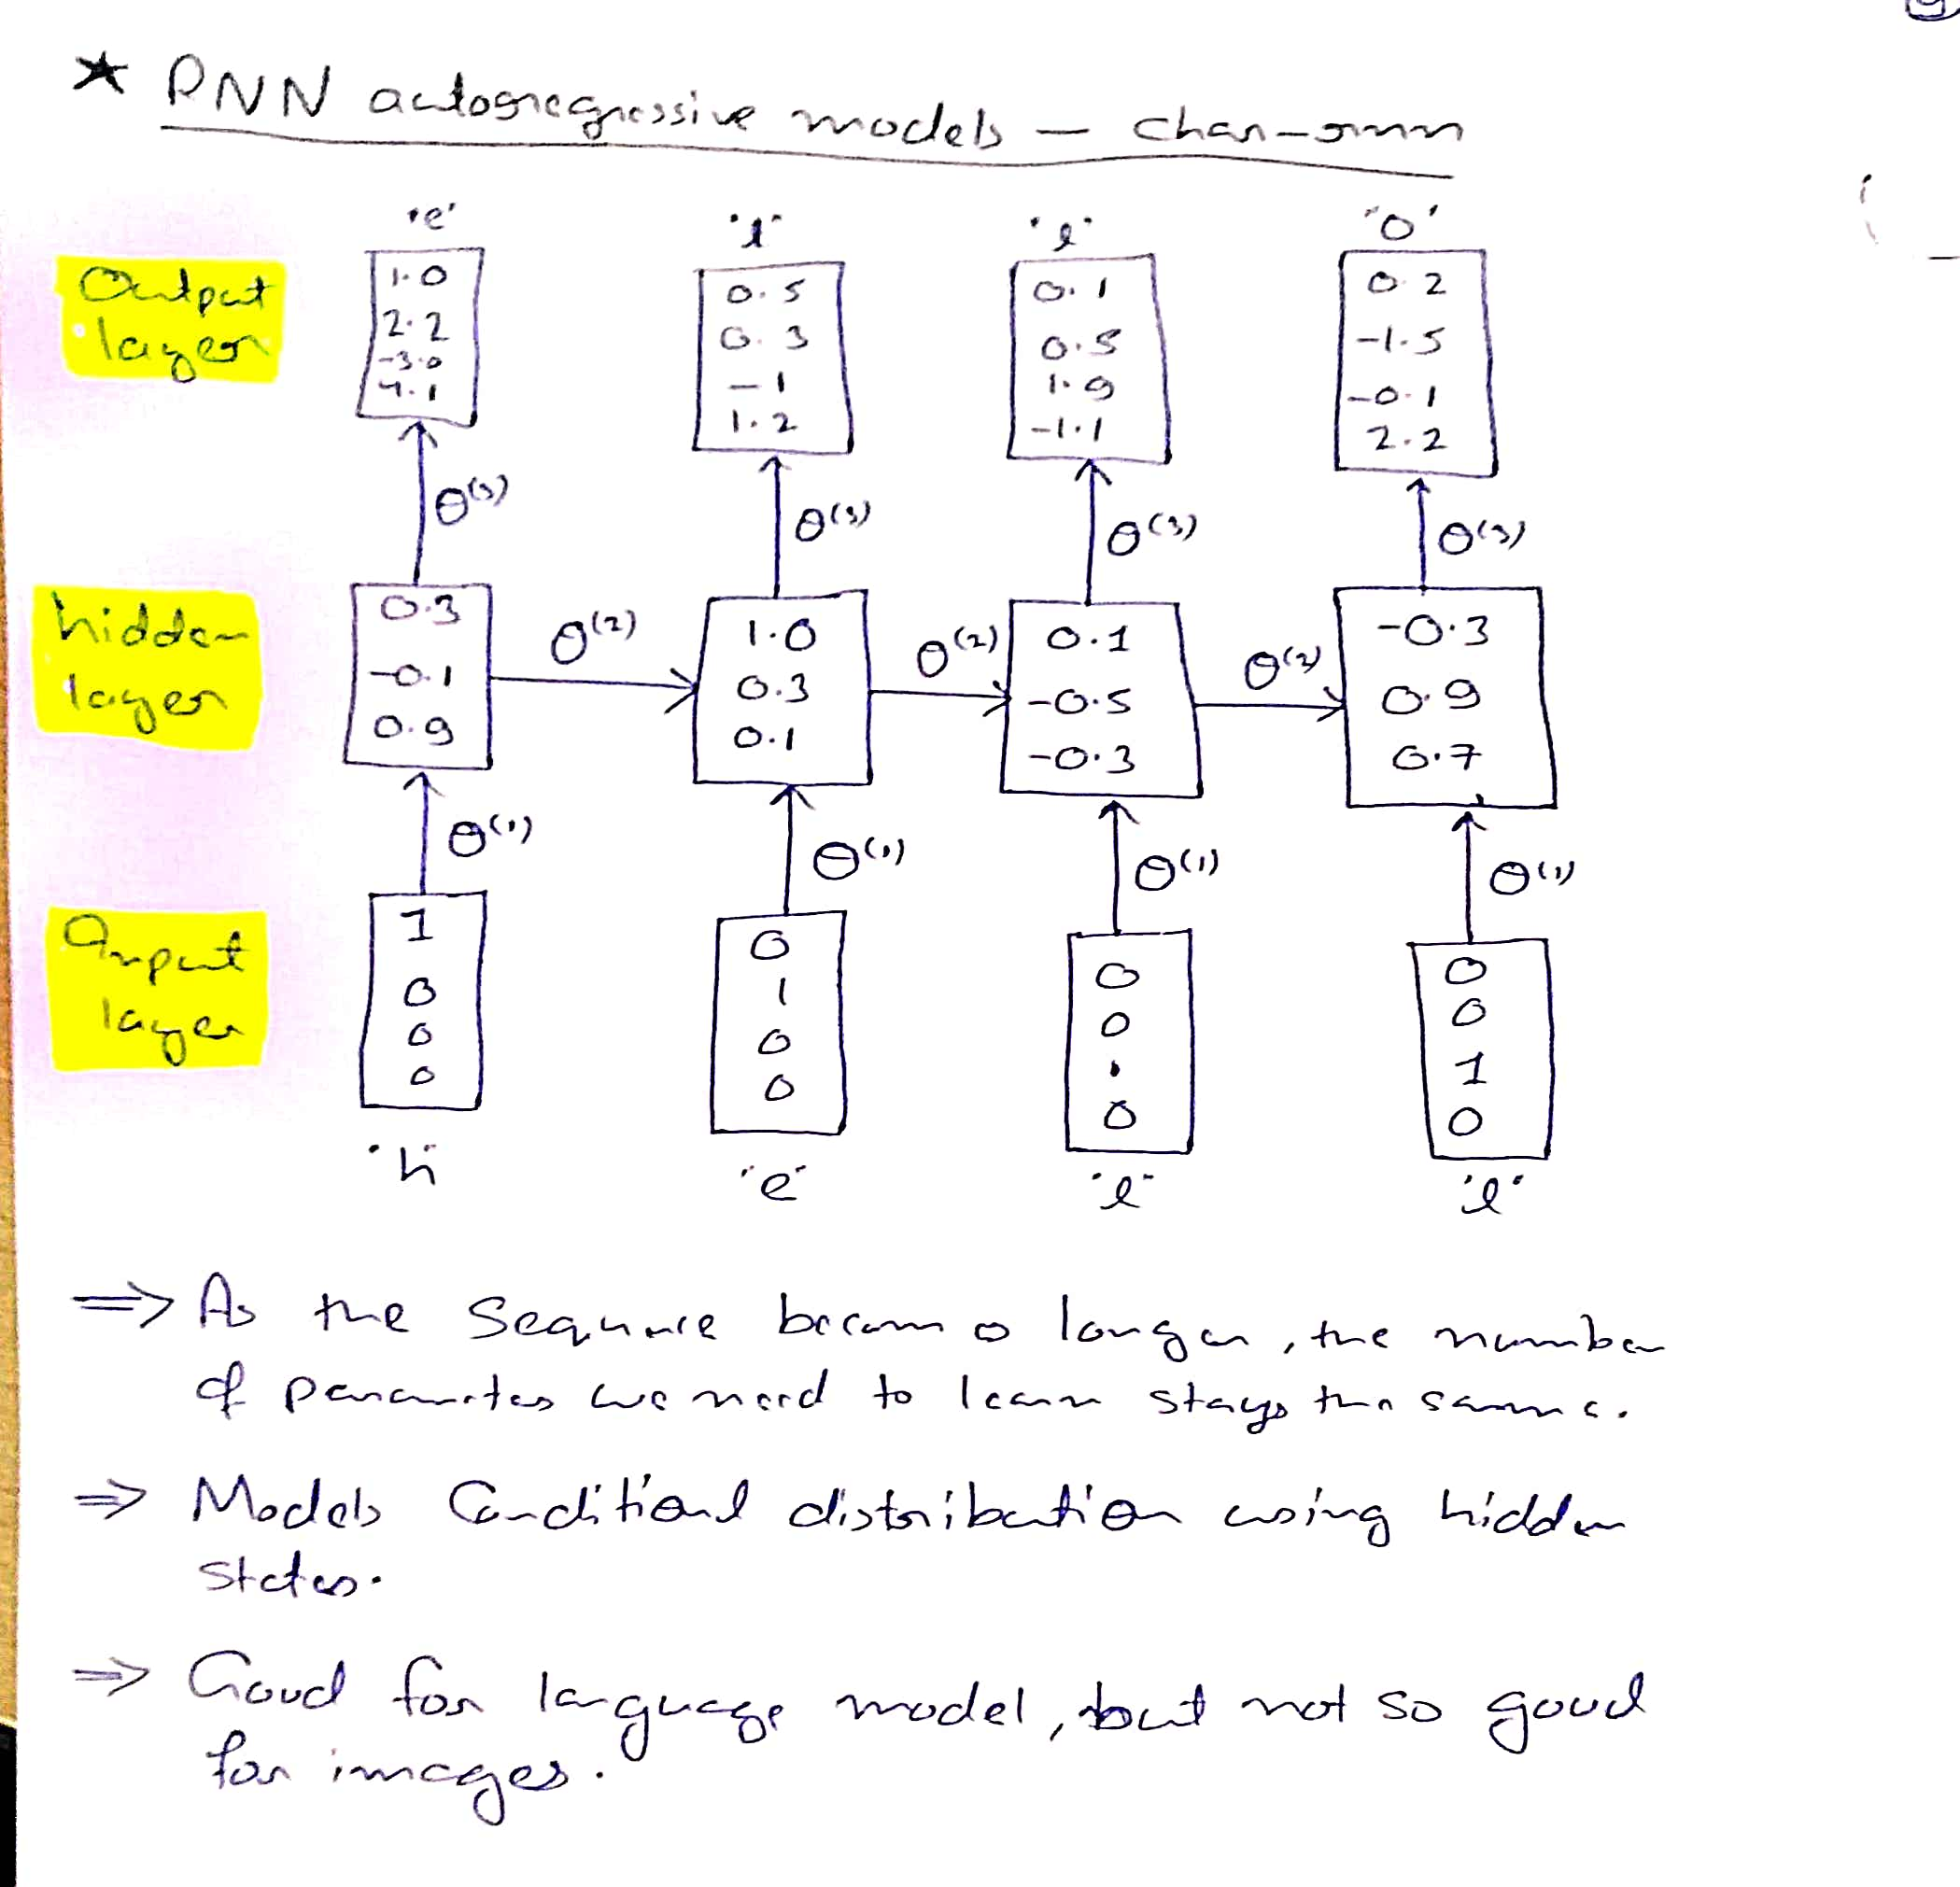 * RNN autoregressive models — char-rnn
'e' 'l' 'l' 'o'
Output layer
1.0 0.5 0.1 0.2
2.2 0.3 0.5 -1.5
-3.0 -1 1.9 -0.1
4.1 1.2 -1.1 2.2
θ(3) θ(3) θ(3) θ(3)
hidden layer
0.3 1.0 0.1 -0.3
-0.1 0.3 -0.5 0.9
0.9 0.1 -0.3 0.7
θ(2) θ(2) θ(2)
θ(1) θ(1) θ(1) θ(1)
Input layer
1 0 0 0
0 1 0 0
0 0 1 1
0 0 0 0
'h' 'e' 'l' 'l'
⇒ As the sequence becomes longer, the number
of parameters we need to learn stays the same.
⇒ Models Conditional distribution using hidden
states.
⇒ Good for language model, but not so good
for images.